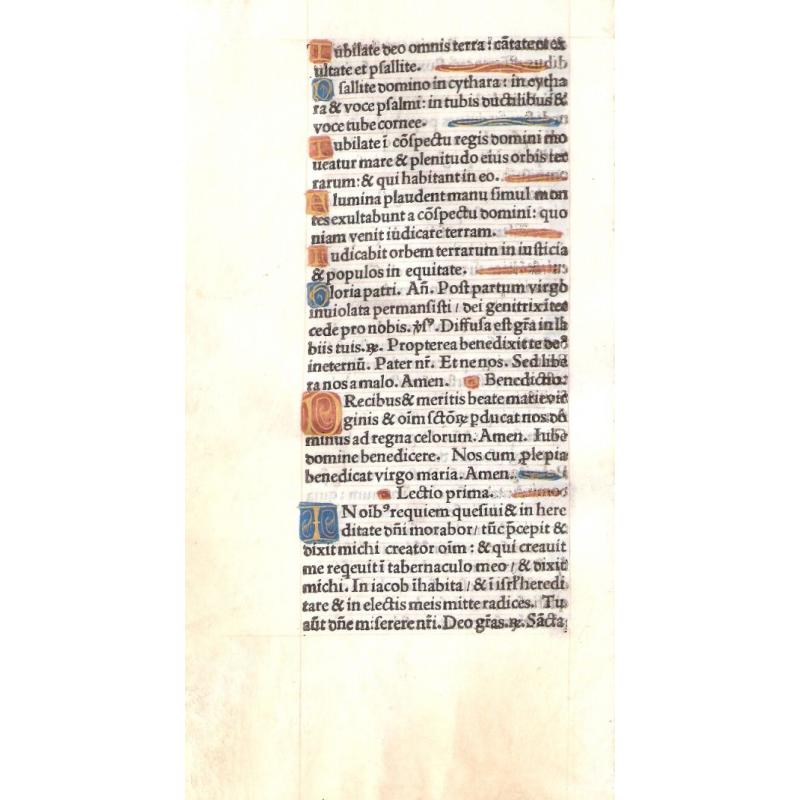 Iubilate deo omnis terra: cãtate et ex
ultate et psallite.
Psallite domino in cythara: in cytha
ra & voce psalmi: in tubis ductilibus &
voce tube cornee.
Iubilate ĩ cõspectu regis domini mo
ueatur mare & plenitudo eius orbis ter
rarum: & qui habitant in eo.
Flumina plaudent manu simul mon
tes exultabunt a cõspectu domini: quo
niam venit iudicare terram.
Iudicabit orbem terrarum in iusticia
& populos in equitate.
Gloria patri. Añ. Post partum virgo
inuiolata permansisti / dei genitrix ĩter
cede pro nobis. ꝟsꝰ. Diffusa est gr̃a in la
biis tuis. ꝶ. Propterea benedixit te deꝰ
in eternũ. Pater nr̃. Et ne nos. Sed libe
ra nos a malo. Amen. Benedictio.
PRecibus & meritis beate marie vir
ginis & oĩm sctõꝝ ꝑducat nos dõ
minus ad regna celorum. Amen. Iube
domine benedicere. Nos cum ꝓle pia
benedicat virgo maria. Amen.
Lectio prima.
IN oĩbꝰ requiem quesiui & in here
ditate dñi morabor / tũc p̃cepit &
dixit michi creator oĩm: & qui creauit
me reqeuit ĩ tabernaculo meo / & dixit
michi. In iacob ĩhabita / & ĩ isrl̃ heredi
tare & in electis meis mitte radices. Tu
aũt dñe miserere nr̃i. Deo gr̃as. ꝶ. Sãcta